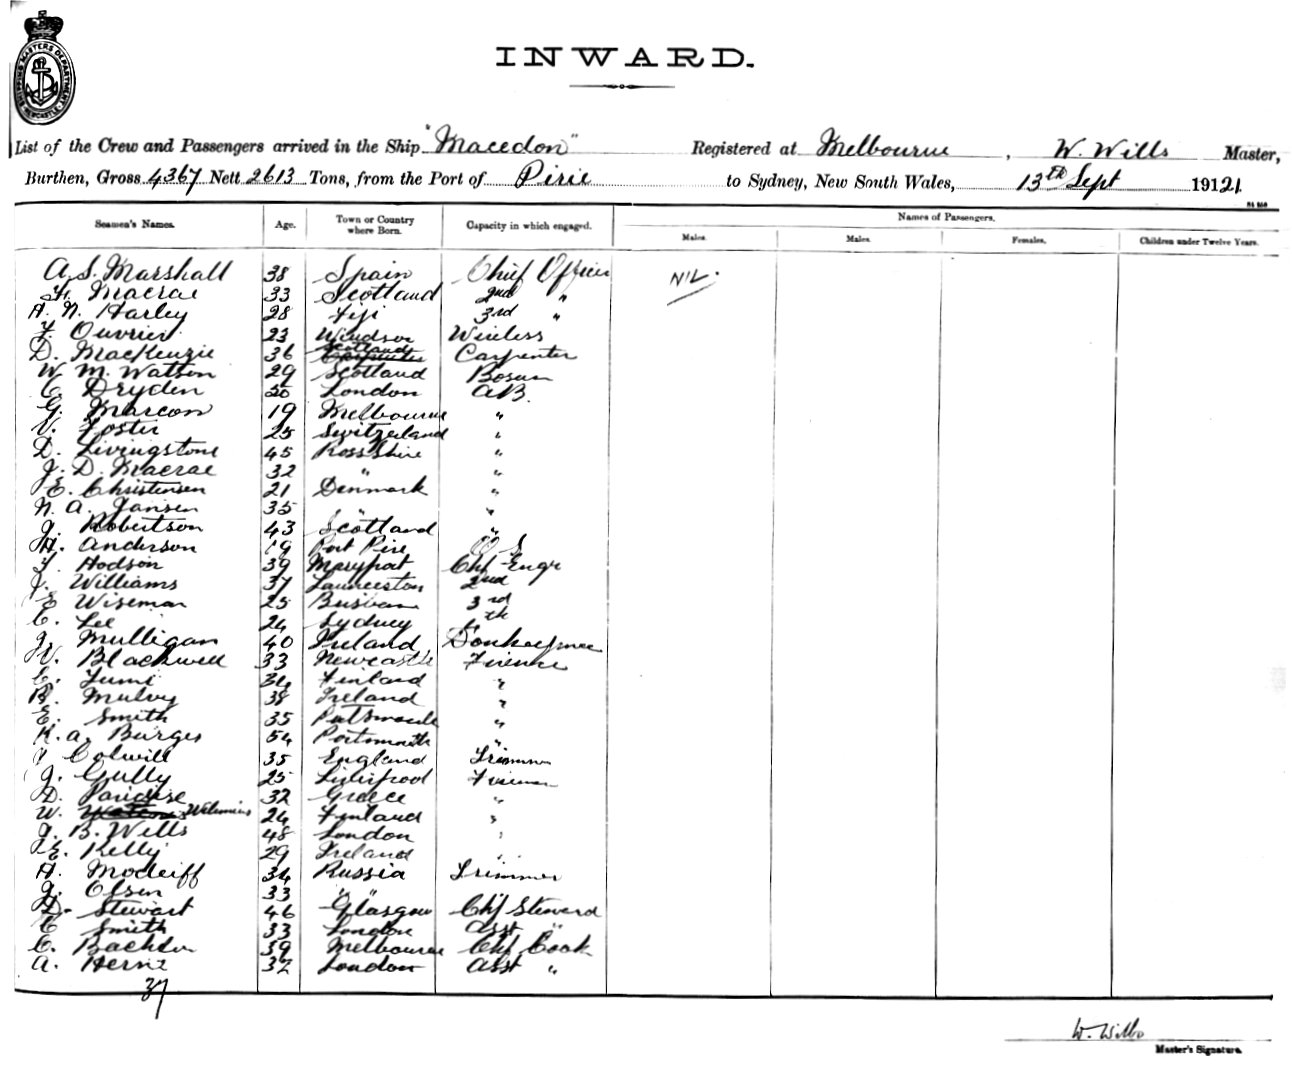 SHIPPING MASTERS DEPARTMENT NEWCASTLE
INWARD.
List of the Crew and Passengers arrived in the Ship "Macedon" Registered at Melbourne, W. Wills Master,
Burthen, Gross 4367 Nett 2613 Tons, from the Port of Pirie to Sydney, New South Wales, 13th Sept 19121
Seamen's Names. Age. Town or Country where Born. Capacity in which engaged. Names of Passengers.
Males. Males. Females. Children under Twelve Years.
A. S. Marshall 38 Spain Chief Officer NIL.
Macrae 33 Scotland 2nd "
A. N. Harley 28 Fiji 3rd "
F. Ouvrier 23 Windsor Wireless
D. MacKenzie 36 Scotland Carpenter Carpenter
W. M. Watson 29 Scotland Bosun
C. Dryden 50 London AB.
G. Marcom 19 Melbourne "
V. Foster 25 Switzerland "
D. Livingstone 45 Ross Shire "
J. D. Macrae 32 " "
E. Christensen 21 Denmark "
N. A. Jansen 35 " "
J. Robertson 43 Scotland "
A. Anderson 19 Port Pirie O S
Hodson 39 Maryport Chf Engr
J. Williams 37 Launceston 2nd
E Wiseman 25 Brisbane 3rd
C. Lee 24 Sydney 4th
J. Mulligan 40 Ireland Donkeyman
Blackwell 33 Newcastle Fireman
34 Finland "
Mulvy 38 Ireland "
E. Smith 35 Portsmouth "
K. A. Burges 54 Portsmouth "
Colwill 35 England Trimmer
J. Gully 25 Liverpool Fireman
D. Paradise 32 Greece "
W. Wilenius 24 Finland "
J. B. Wills 48 London "
E. Kelly 29 Ireland "
A. Modeiff 34 Russia Trimmer
J. Olsen 33 " "
D. Stewart 46 Glasgow Chf Steward
C Smith 33 London Asst "
C. 39 Melbourne Chf Cook
A. Herne 32 London Asst "
37
W. Wills
Master's Signature.